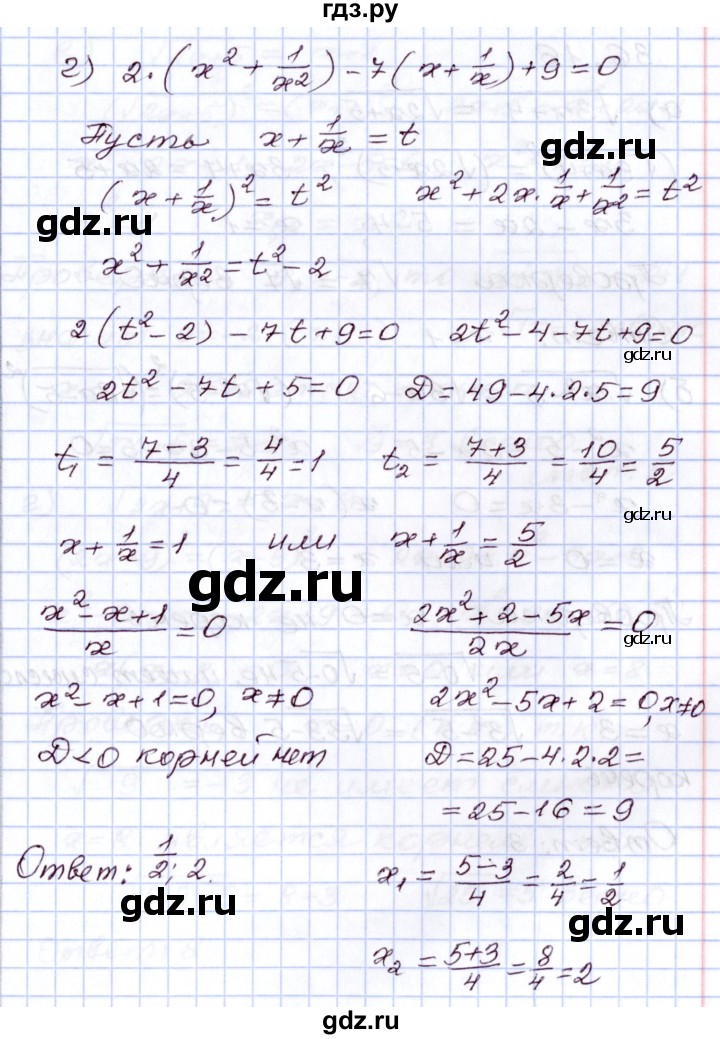 гдз.ру
г) 2·(x² + 1/x²) − 7(x + 1/x) + 9 = 0
Пусть x + 1/x = t
(x + 1/x)² = t² x² + 2x·1/x + 1/x² = t²
gdz.ru
gdz.ru
x² + 1/x² = t² − 2
2(t² − 2) − 7t + 9 = 0 2t² − 4 − 7t + 9 = 0
gdz.ru
2t² − 7t + 5 = 0 D = 49 − 4·2·5 = 9
t₁ = (7−3)/4 = 4/4 = 1 t₂ = (7+3)/4 = 10/4 = 5/2
gdz.ru
x + 1/x = 1 или x + 1/x = 5/2
gdz.ru
(x² − x + 1)/x = 0 (2x² + 2 − 5x)/2x = 0
gdz.ru
x² − x + 1 = 0, x ≠ 0 2x² − 5x + 2 = 0, x ≠ 0
D < 0 корней нет D = 25 − 4·2·2 =
gdz.ru
= 25 − 16 = 9
Ответ: 1/2; 2. x₁ = (5−3)/4 = 2/4 = 1/2
gdz.ru
gdz.ru
x₂ = (5+3)/4 = 8/4 = 2
gdz.ru